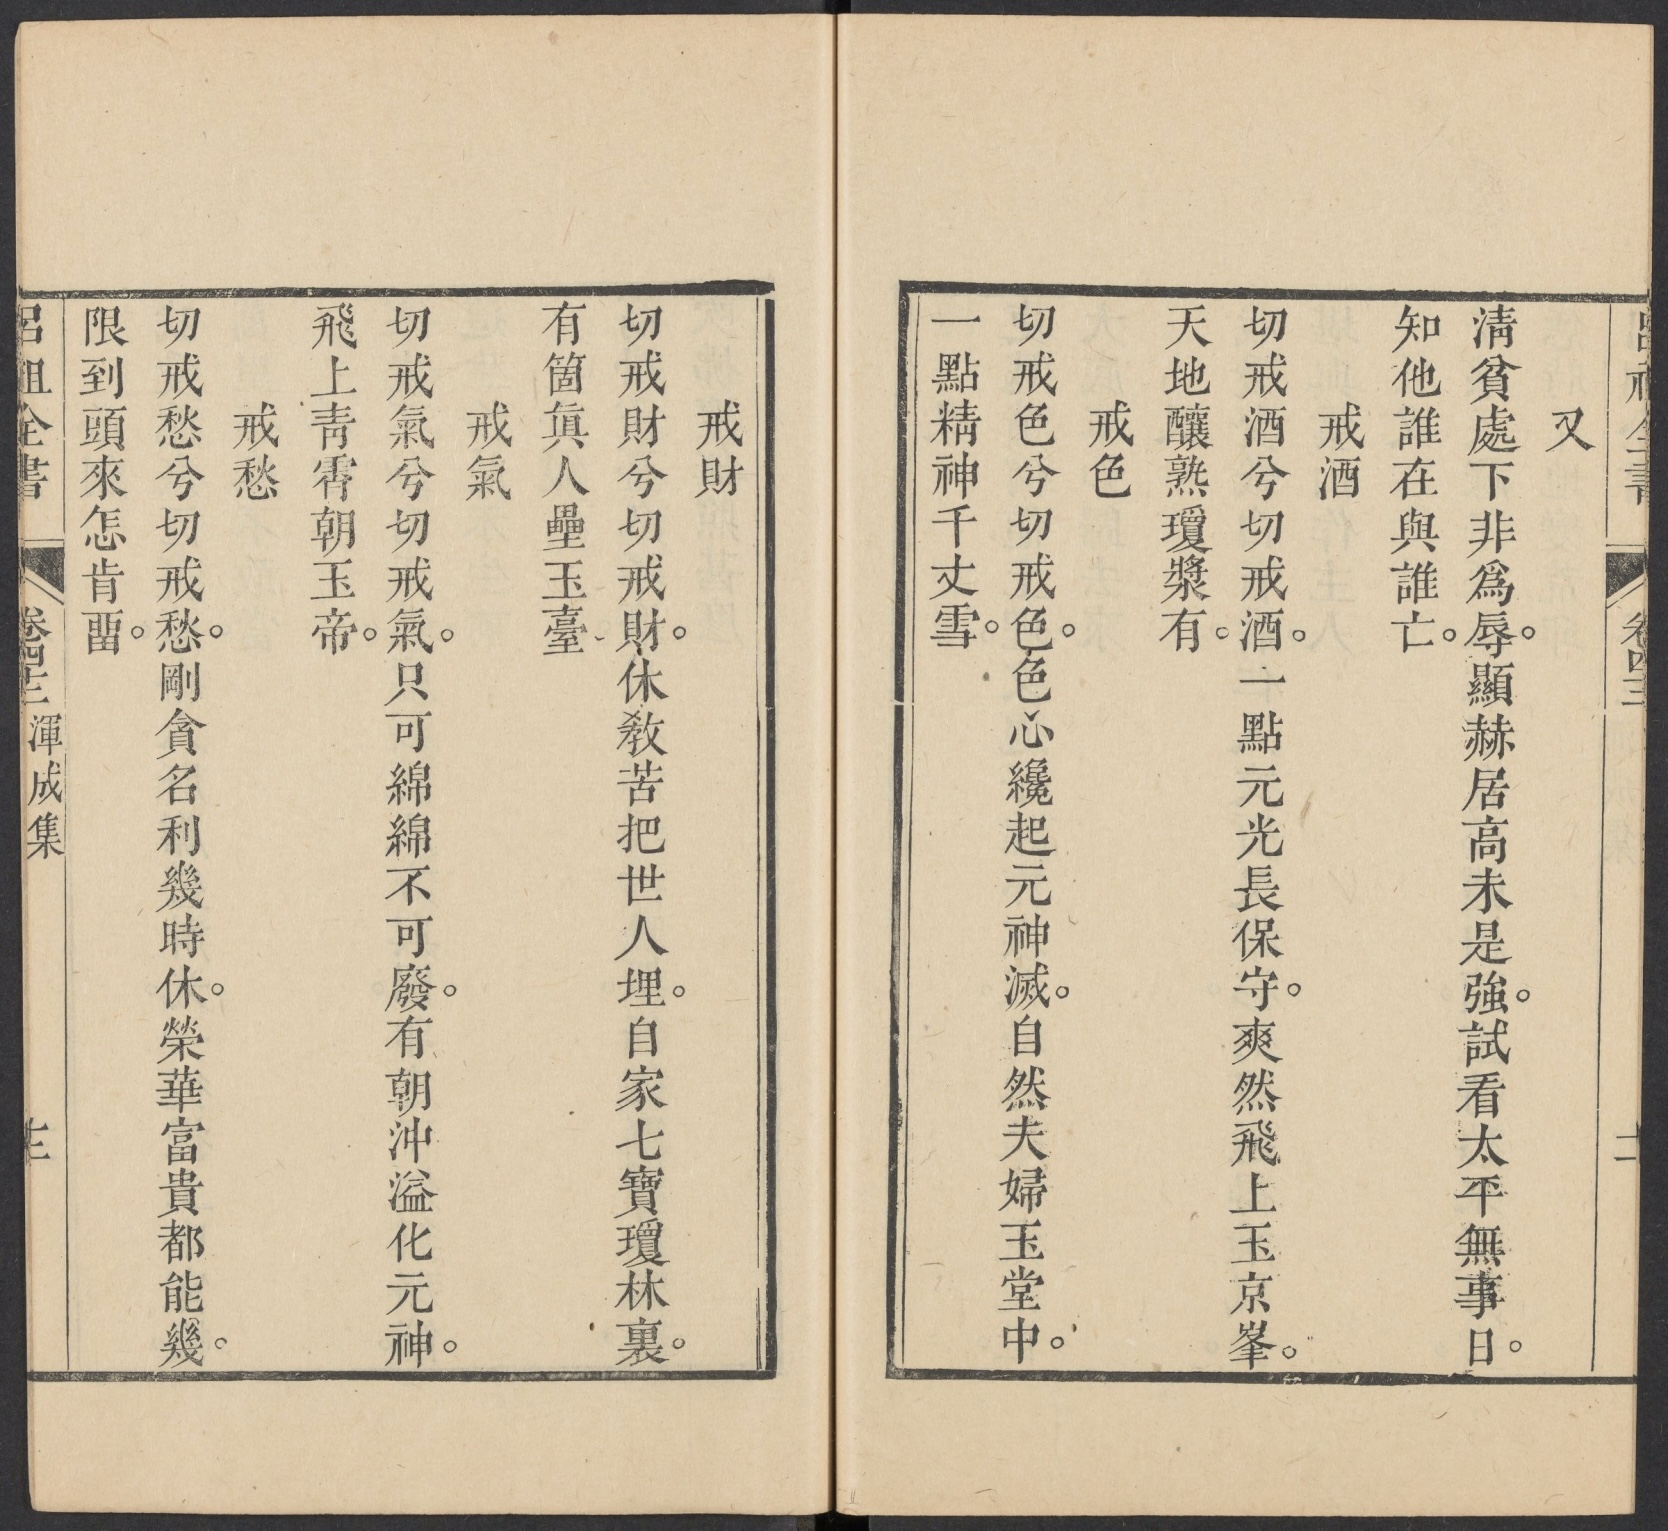 又
淸貧處下非爲辱。顯赫居高未是強。試看太平無事日。
知他誰在與誰亡。
戒酒
切戒酒兮切戒酒。一點元光長保守。爽然飛上玉京峯。
天地釀熟瓊漿有。
戒色
切戒色兮切戒色。色心纔起元神滅。自然夫婦玉堂中。
一點精神千丈雪。
戒財
切戒財兮切戒財。休敎苦把世人埋。自家七寶瓊林裏。
有箇眞人壘玉臺
戒氣
切戒氣兮切戒氣。只可綿綿不可廢。有朝沖溢化元神。
飛上靑霄朝玉帝。
戒愁
切戒愁兮切戒愁。剛貪名利幾時休。榮華富貴都能幾。
限到頭來怎肯畱。
呂祖全書 卷四十三 渾成集